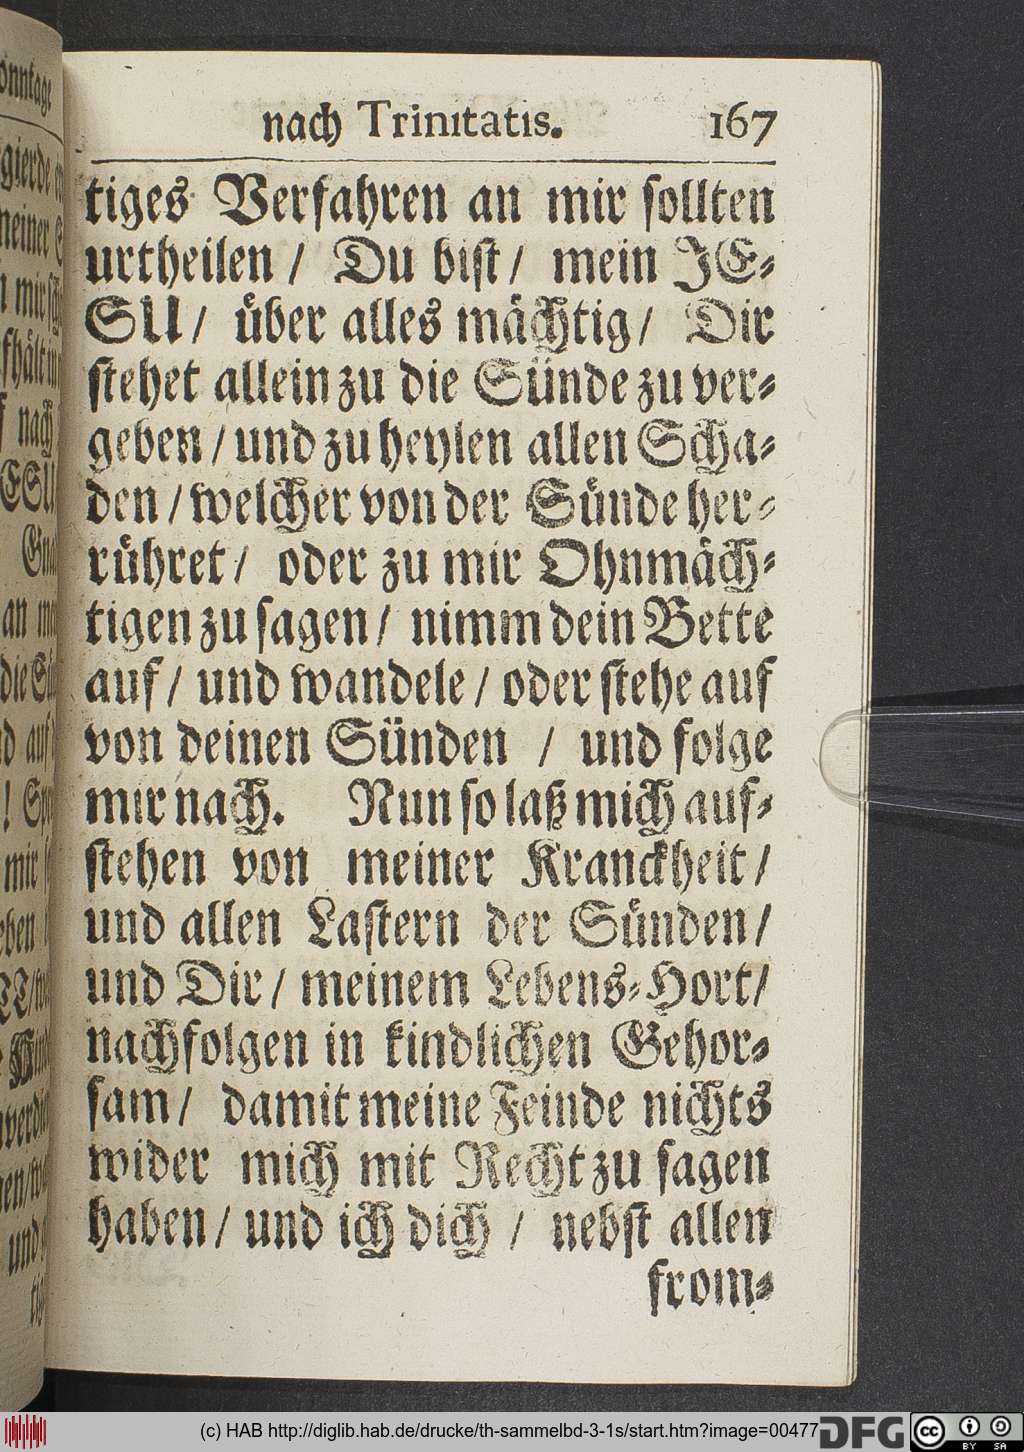 nach Trinitatis. 167
tiges Verfahren an mir sollten
urtheilen / Du bist / mein JE-
SU / über alles mächtig / Dir
stehet allein zu die Sünde zu ver-
geben / und zu heylen allen Scha-
den / welcher von der Sünde her-
rühret / oder zu mir Ohnmäch-
tigen zu sagen / nimm dein Bette
auf / und wandele / oder stehe auf
von deinen Sünden / und folge
mir nach. Nun so laß mich auf-
stehen von meiner Kranckheit /
und allen Lastern der Sünden /
und Dir / meinem Lebens-Hort /
nachfolgen in kindlichen Gehor-
sam / damit meine Feinde nichts
wider mich mit Recht zu sagen
haben / und ich dich / nebst allen
from-
(c) HAB http://diglib.hab.de/drucke/th-sammelbd-3-1s/start.htm?image=00477
DFG
cc BY SA